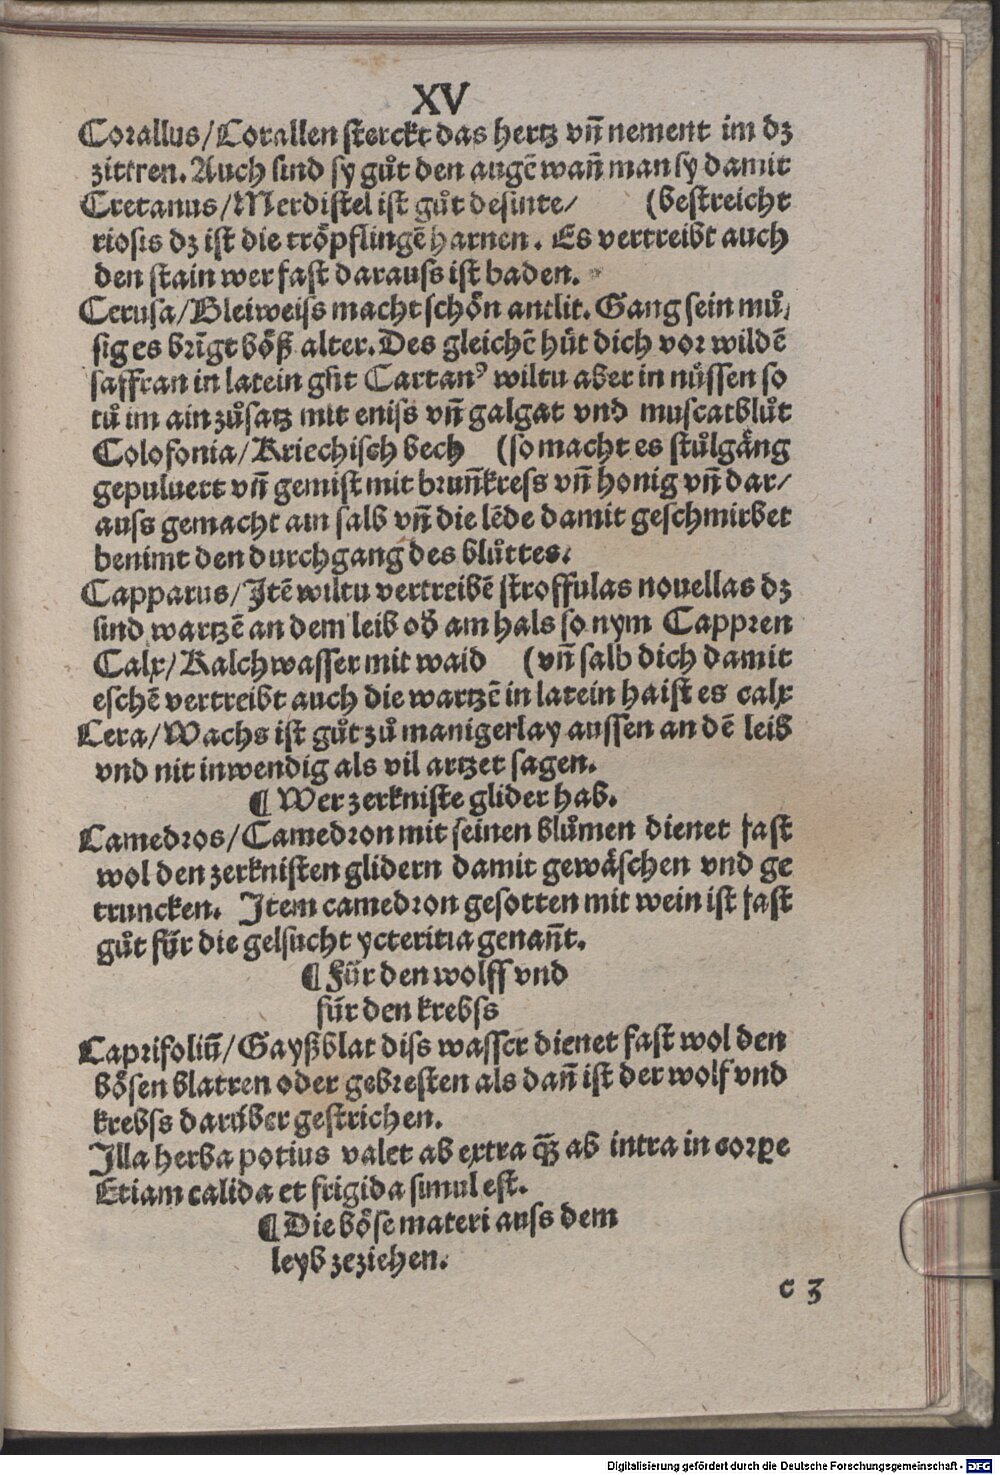 XV
Corallus/Corallen sterckt das hertz vñ nement im dz
zittren. Auch sind sy gůt den augē wañ man sy damit
Cretanus/Merdistel ist gůt desinte/ (bestreicht
riosis dz ist die tröpflingē harnen. Es vertreibt auch
den stain wer fast darauss ist baden.
Cerusa/Bleiweiss macht schön antlit. Gang sein mů/
sig es brīgt böß alter. Des gleichē hüt dich vor wildē
saffran in latein gñt Cartanꝰ wiltu aber in nüssen so
tů im ain zůsatz mit eniss vñ galgat vnd muscatblůt
Colofonia/Kriechisch bech (so macht es stůlgäng
gepuluert vñ gemist mit brunñkress vñ honig vñ dar/
auss gemacht ain salb vñ die lēde damit geschmirbet
benimt den durchgang des blůttes.
Capparus/Itē wiltu vertreibē stroffulas nouellas dz
sind wartzē an dem leib od̕ am hals so nym Cappren
Calx/Kalchwasser mit waid (vñ salb dich damit
eschē vertreibt auch die wartzē in latein haist es calx
Cera/Wachs ist gůt zů manigerlay aussen an dē leib
vnd nit inwendig als vil artzet sagen.
¶ Wer zerkniste glider hab.
Camedros/Camedron mit seinen blůmen dienet fast
wol den zerknisten glidern damit gewäschen vnd ge
truncken. Item camedron gesotten mit wein ist fast
gůt für die gelsucht ycteritia genañt.
¶ Für den wolff vnd
für den krebss
Caprifoliũ/Gayßblat diss wasser dienet fast wol den
bösen blatren oder gebresten als dañ ist der wolf vnd
krebss darüber gestrichen.
Illa herba potius valet ab extra q̃ꝫ ab intra in corꝑe
Etiam calida et frigida simul est.
¶ Die böse materi auss dem
leyb zeziehen.
c 3
Digitalisierung gefördert durch die Deutsche Forschungsgemeinschaft - DFG